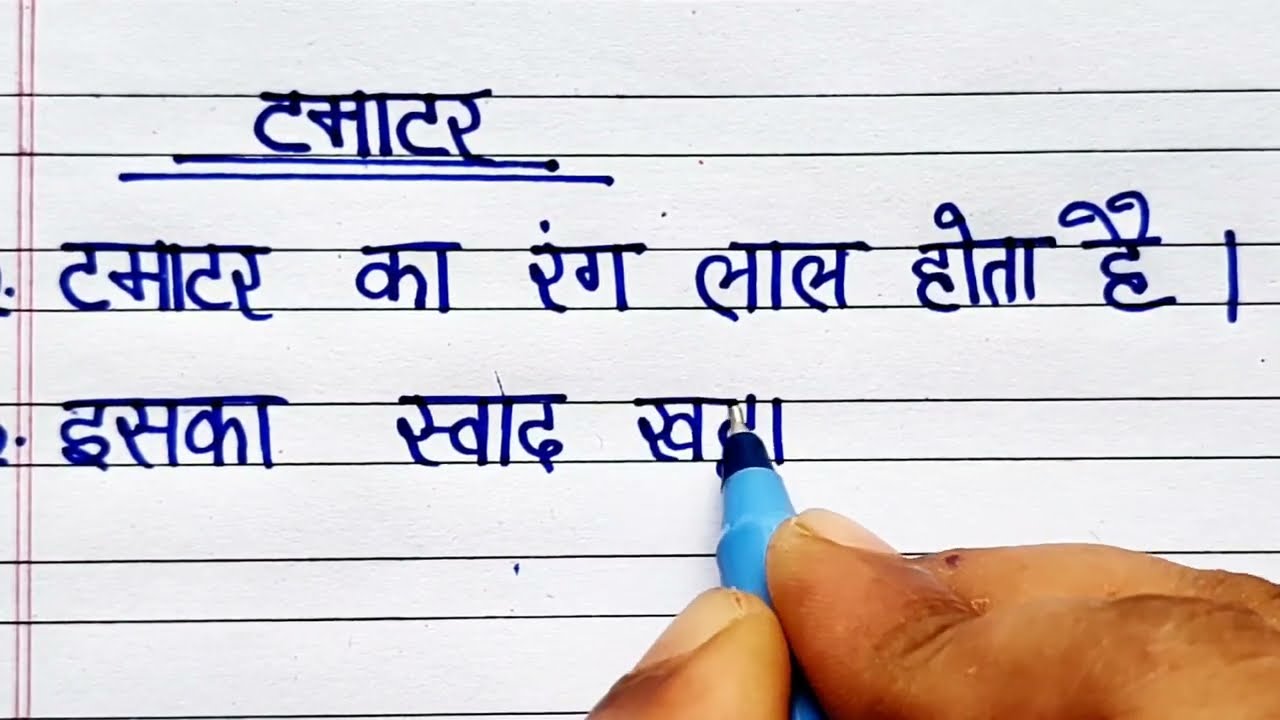 टमाटर
टमाटर का रंग लाल होता है।
इसका स्वाद